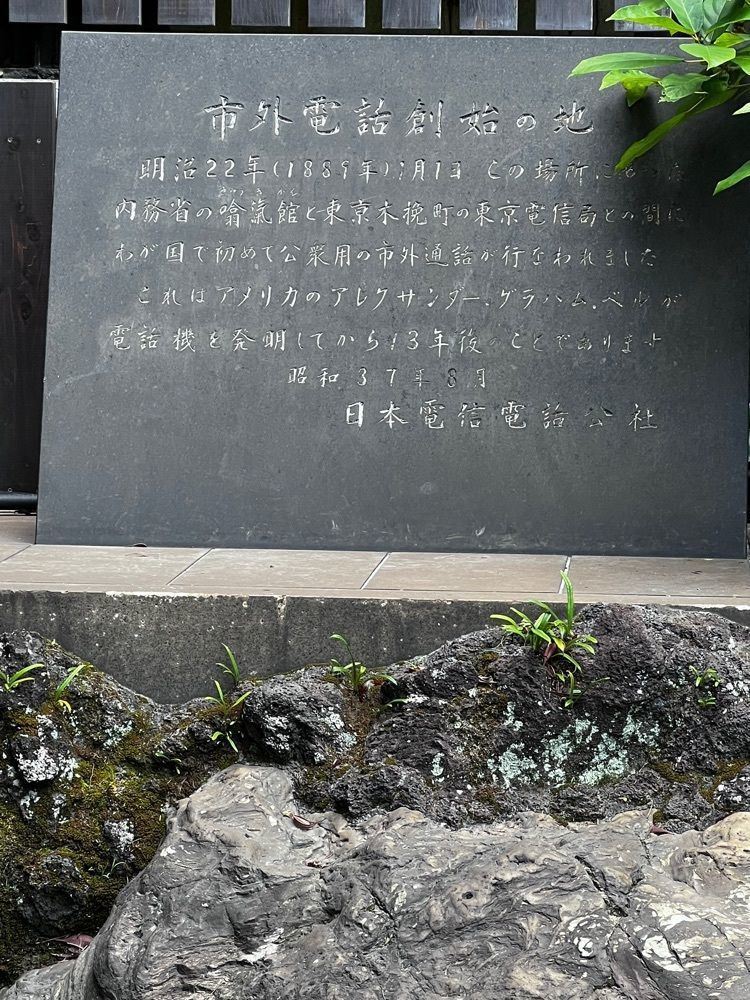 市外電話創始の地
明治22年(1889年)1月1日 この場所にあった
きゅう き かん
内務省の噏滊館と東京木挽町の東京電信局との間に
わが国で初めて公衆用の市外通話が行なわれました
これはアメリカのアレクサンダー.グラハム.ベルが
電話機を発明してから13年後のことであります
昭和37年8月
日本電信電話公社